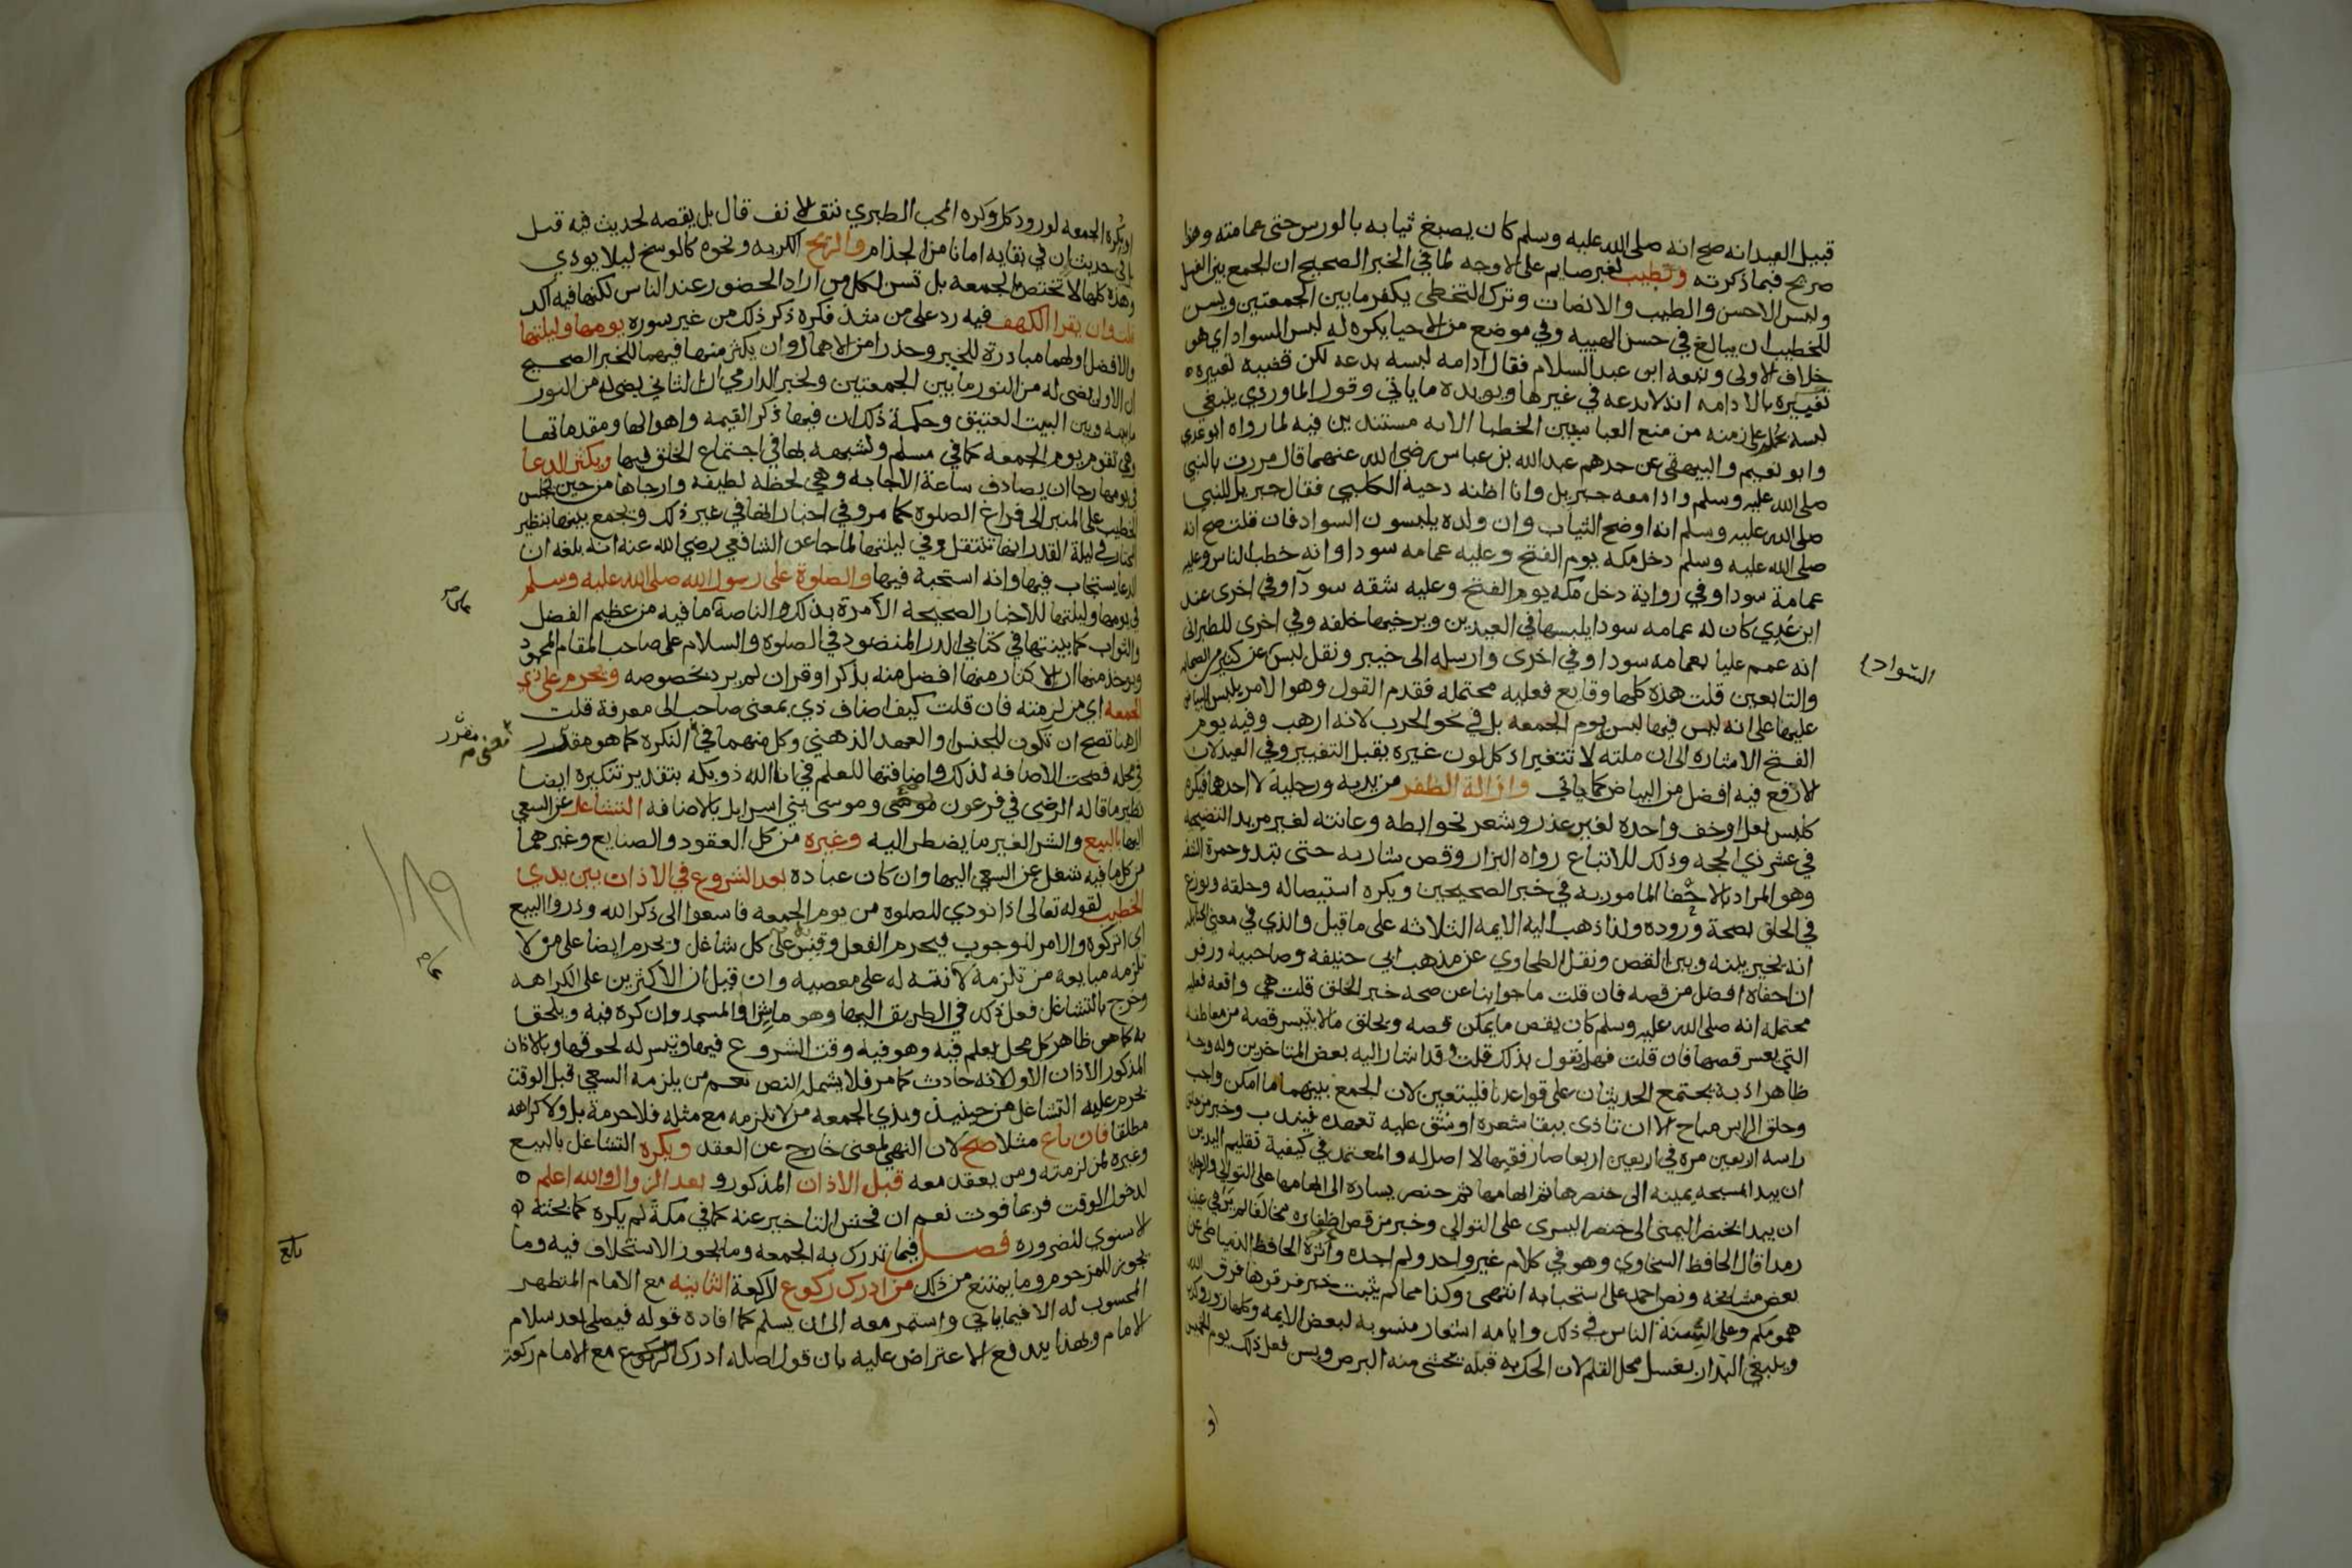 قبيل العيد انه صح انه صلى الله عليه وسلم كان يصبغ ثيابه بالورس حتى عمامته وهذا
صريح فيما ذكرته وتطيب لغير صايم على الاوجه لما في الخبر الصحيح ان الجمع بين الغسل
ولبس الاحسن والطيب والانصات وترك التخطى يكفر ما بين الجمعتين ويسن
للخطيب ان يبالغ في حسن الهييه وفي موضع من الاحيا يكره له لبس السواد اي هو
خلاف الاولى وتبعه ابن عبد السلام فقال ادامه لبسه بدعه لكن قضيه تعبيره
تقييره بالادامه انه لا بدعه في غيرها ويويده ما ياتي وقول الماوردي ينبغي
لبسه يحمل على زمنه من منع العباسيين الخطبا الا به مستندين فيه لما رواه ابو عدي
وابو نعيم والبيهقي عن جدهم عبد الله بن عباس رضي الله عنهما قال مررت بالنبي
صلى الله عليه وسلم واذا معه جبريل وانا اظنه دحيه الكلبي فقال جبريل للنبي
صلى الله عليه وسلم انه اوضح الثياب وان ولده يلبسون السواد فان قلت صح انه
صلى الله عليه وسلم دخل مكه يوم الفتح وعليه عمامه سودا وانه خطب الناس وعليه
عمامة سودا وفي رواية دخل مكه يوم الفتح وعليه شقه سودآ وفي اخرى عند
ابن عدي كان له عمامه سودا يلبسها في العيدين ويرخيها خلفه وفي اخرى للطبراني
انه عمم عليا بعمامه سودا وفي اخرى وارسله الى خيبر ونقل لبس عن كثير من الصحابه
السواد
والتابعين قلت هذه كلها وقايع فعليه محتمله فقدم القول وهو الامر بلبس البياض
عليها على انه ليس فيها لبس يوم الجمعه بل في نحو الحرب لانه ارهب وفيه يوم
الفتح الاشاره الى ان ملته لا تتغير اذ كل لون غيره يقبل التغيير وفي العيد لان
الارفع فيه افضل من البياض كما ياتي وازالة الظفر من يديه ورجليه لا احدهما فيكره
كلبس نعل او خف واحده لغير عذر وشعر نحو ابطه وعانته لغير مريد التضحيه
في عشر ذي الحجه وذلك للاتباع رواه البزار وقص شاربه حتى تبدو حمرة الشفه
وهو المراد بالاحفا المامور به في خبر الصحيحين ويكره استيصاله وحلقه ونوزع
في الحلق بصحة وروده ولذا ذهب اليه الايمه الثلاثه على ما قيل والذي في معنى
انه يخير بينه وبين القص ونقل الطحاوي عن مذهب ابي حنيفه وصاحبيه وزفر
ان احفاه افضل من قصه فان قلت ما جوابنا عن صحه خبر الحلق قلت هي واقعه فعليه
محتمله انه صلى الله عليه وسلم كان يقص ما يمكن قصه ويحلق ما لا يتيسر قصه من معاطفه
التي يعسر قصها فان قلت فهل نقول بذلك قلت قد اشار اليه بعض المتاخرين وله وجه
ظاهر اذ به يجتمع الحديثان على قواعدنا فليتعين لان الجمع بينهما ما امكن واجب
وحلق الراس مباح الا ان تاذى ببقا شعره او شق عليه تعهده فيندب وخبر من حلق
راسه اربعين مره في اربعين اربعا صار فقيها لا اصل له والمعتمد في كيفية تقليم اليدين
ان يبدا بمسبحه يمينه الى خنصرها ثم ابهامها ثم خنصر يساره الى ابهامها على التوالي والرجلين
ان يبدا بخنصر اليمنى الى خنصر اليسرى على التوالي وخبر من قص اظفاره مخالفا لم ير في عينيه
رمدا قال الحافظ السخاوي وهو في كلام غير واحد ولم اجده واثره الحافظ الدمياطي عن
بعض مشايخه ونص احمد على استحبابه انتهى وكذا مما لم يثبت خبر فرقوها فرق الله
همومكم وعلى السنة الناس في ذلك وايامه اشعار منسوبه لبعض الايمه وكلها زور وكذب
وينبغي البدار بغسل محل القلم لان الحك به قبله يخشى منه البرص ويسن فعل ذلك يوم الخميس
او
او بكرة الجمعه لورود كل وكره المحب الطبري نتف الانف قال بل يقصه لحديث فيه قيل
بل في حديث ان في بقايه امانا من الجذام والريح الكريه ونحوه كالوسخ ليلا يوذي
وهذه كلها لا تختص بالجمعه بل تسن لكل من اراد الحضور عند الناس لكنها فيه اكد
قلت وان يقرا الكهف فيه رد على من شذ فكره ذكر ذلك من غير سوره يومها وليلتها
والافضل اولهما مبادرة للخير وحذرا من الاهمال وان يكثر منها فيهما للخبر الصحيح
ان الاول يضي له من النور ما بين الجمعتين ولخبر الدارمي ان الثاني يضي له من النور
ما بينه وبين البيت العتيق وحكمة ذلك ان فيها ذكر القيمه واهوالها ومقدماتها
وهي تقوم يوم الجمعه كما في مسلم ولشبهه بها في اجتماع الخلق فيها ويكثر الدعا
في يومها رجا ان يصادف ساعة الاجابه وهي لحظه لطيفه وارجاها من حين يجلس
الخطيب على المنبر الى فراغ الصلوة كما مر وفي اخبار انها في غير ذلك ويجمع بينها بنظير
المختار في ليلة القدر انها تنتقل وفي ليلتها لما جا عن الشافعي رضي الله عنه انه بلغه ان
الدعا يستجاب فيها وانه استحبه فيها والصلوة على رسول الله صلى الله عليه وسلم
في يومها وليلتها للاخبار الصحيحه الآمرة بذلك والناصة ما فيه من عظيم الفضل
والثواب كما بينتها في كتابي الدر المنضود في الصلوة والسلام على صاحب المقام المحمود
ويوخذ منها ان الاكثار منها افضل منه بذكر او قران لم يرد بخصوصه ويحرم على ذي
الجمعه اي من لزمته فان قلت كيف اضاف ذي بمعنى صاحب الى معرفة قلت
ال هنا تصح ان تكون للجنس او العهد الذهني وكل منهما في النكرة كما هو مقدر
معنى
مقرر
في محله فصحت الاضافه لذلك واضافتها للعلم في انا الله ذو بكه بتقدير تنكيره ايضا
نظير ما قاله الرضى في فرعون موسى وموسى بني اسرايل بالاضافه التشاغل عن السعي
اليها بالبيع والشرا لغير ما يضطر اليه وغيره من كل العقود والصنايع وغيرهما
من كل ما فيه شغل عن السعي اليها وان كان عباده بعد الشروع في الاذان بين يدي
الخطيب لقوله تعالى اذا نودي للصلوة من يوم الجمعه فاسعوا الى ذكر الله وذروا البيع
اي اتركوه والامر للوجوب فيحرم الفعل وقيس على كل شاغل ويحرم ايضا على من لا
تلزمه مبايعه من تلزمه لاعانته له على معصيه وان قيل ان الاكثرين على الكراهه
وخرج بالتشاغل فعل ذلك في الطريق اليها وهو ماش او المسجد وان كره فيه ويلحق
به كما هو ظاهر كل محل يعلم فيه وهو فيه وقت الشروع فيها ويتيسر له لحوقها وبالاذان
المذكور الاذان الاول لانه حادث كما مر فلا يشمله النص نعم من يلزمه السعي قبل الوقت
يحرم عليه التشاغل من حينيذ وبذي الجمعه من لا تلزمه مع مثله فلا حرمة بل ولا كراهه
مطلقا فان باع مثلا صح لان النهي لمعنى خارج عن العقد ويكره التشاغل بالبيع
وغيره لمن لزمته ومن يعقد معه قبل الاذان المذكور و بعد الزوال والله اعلم
لدخول الوقت فربما فوت نعم ان فحش التاخير عنه كما في مكة لم يكره كما بحثه
الاسنوي للضروره فصل فيما تدرك به الجمعه وما يجوز الاستخلاف فيه وما
بلغ
يجوز للمزحوم وما يمتنع من ذلك من ادرك ركوع الركعة الثانيه مع الامام المتطهر
المحسوب له الا فيما ياتي واستمر معه الى ان يسلم كما افاده قوله فيصلي بعد سلام
الامام وبهذا يندفع الاعتراض عليه بان قول اصله ادرك الركوع مع الامام ركعة